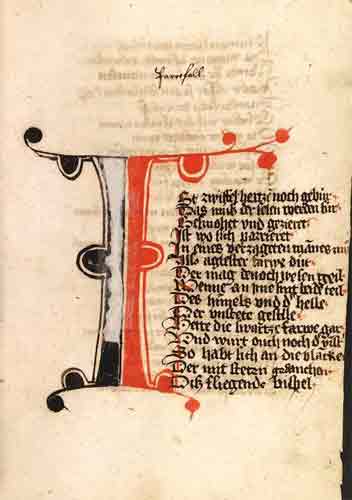 Parcifall
ISt zwiffel hertze noch gebur
Das muß der selen werden sur
Gesmohet vnd gezieret
Ist wo sich parrieret
verzageten manes
Als agelster varwe dut
Der mag denoch wesen geil
Wenne an yme sint beide teil
Des himels vnd d' helle
Der vnstete geselle
Hette die swartze farwe gar
Vnd wurt ouch noch d'
So habt sich an die blancke
Der mit steten gedancken
Dis fliegende bispel